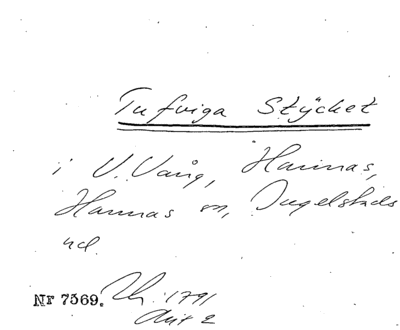 Tufviga Stycket
i V. Vång, Hannas,
Hannas sn, Ingelstads
hd.
Nr 7569. Th. 1791
Akt 2